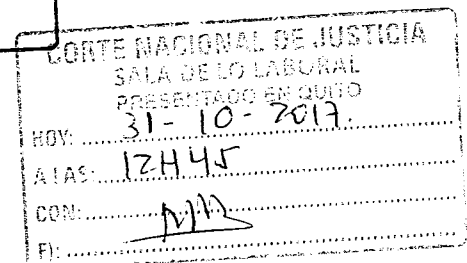 CORTE NACIONAL DE JUSTICIA
SALA DE LO LABORAL
PRESENTADO EN QUITO
HOY: 31-10-2017.
A LAS: 12H45
CON:
F):